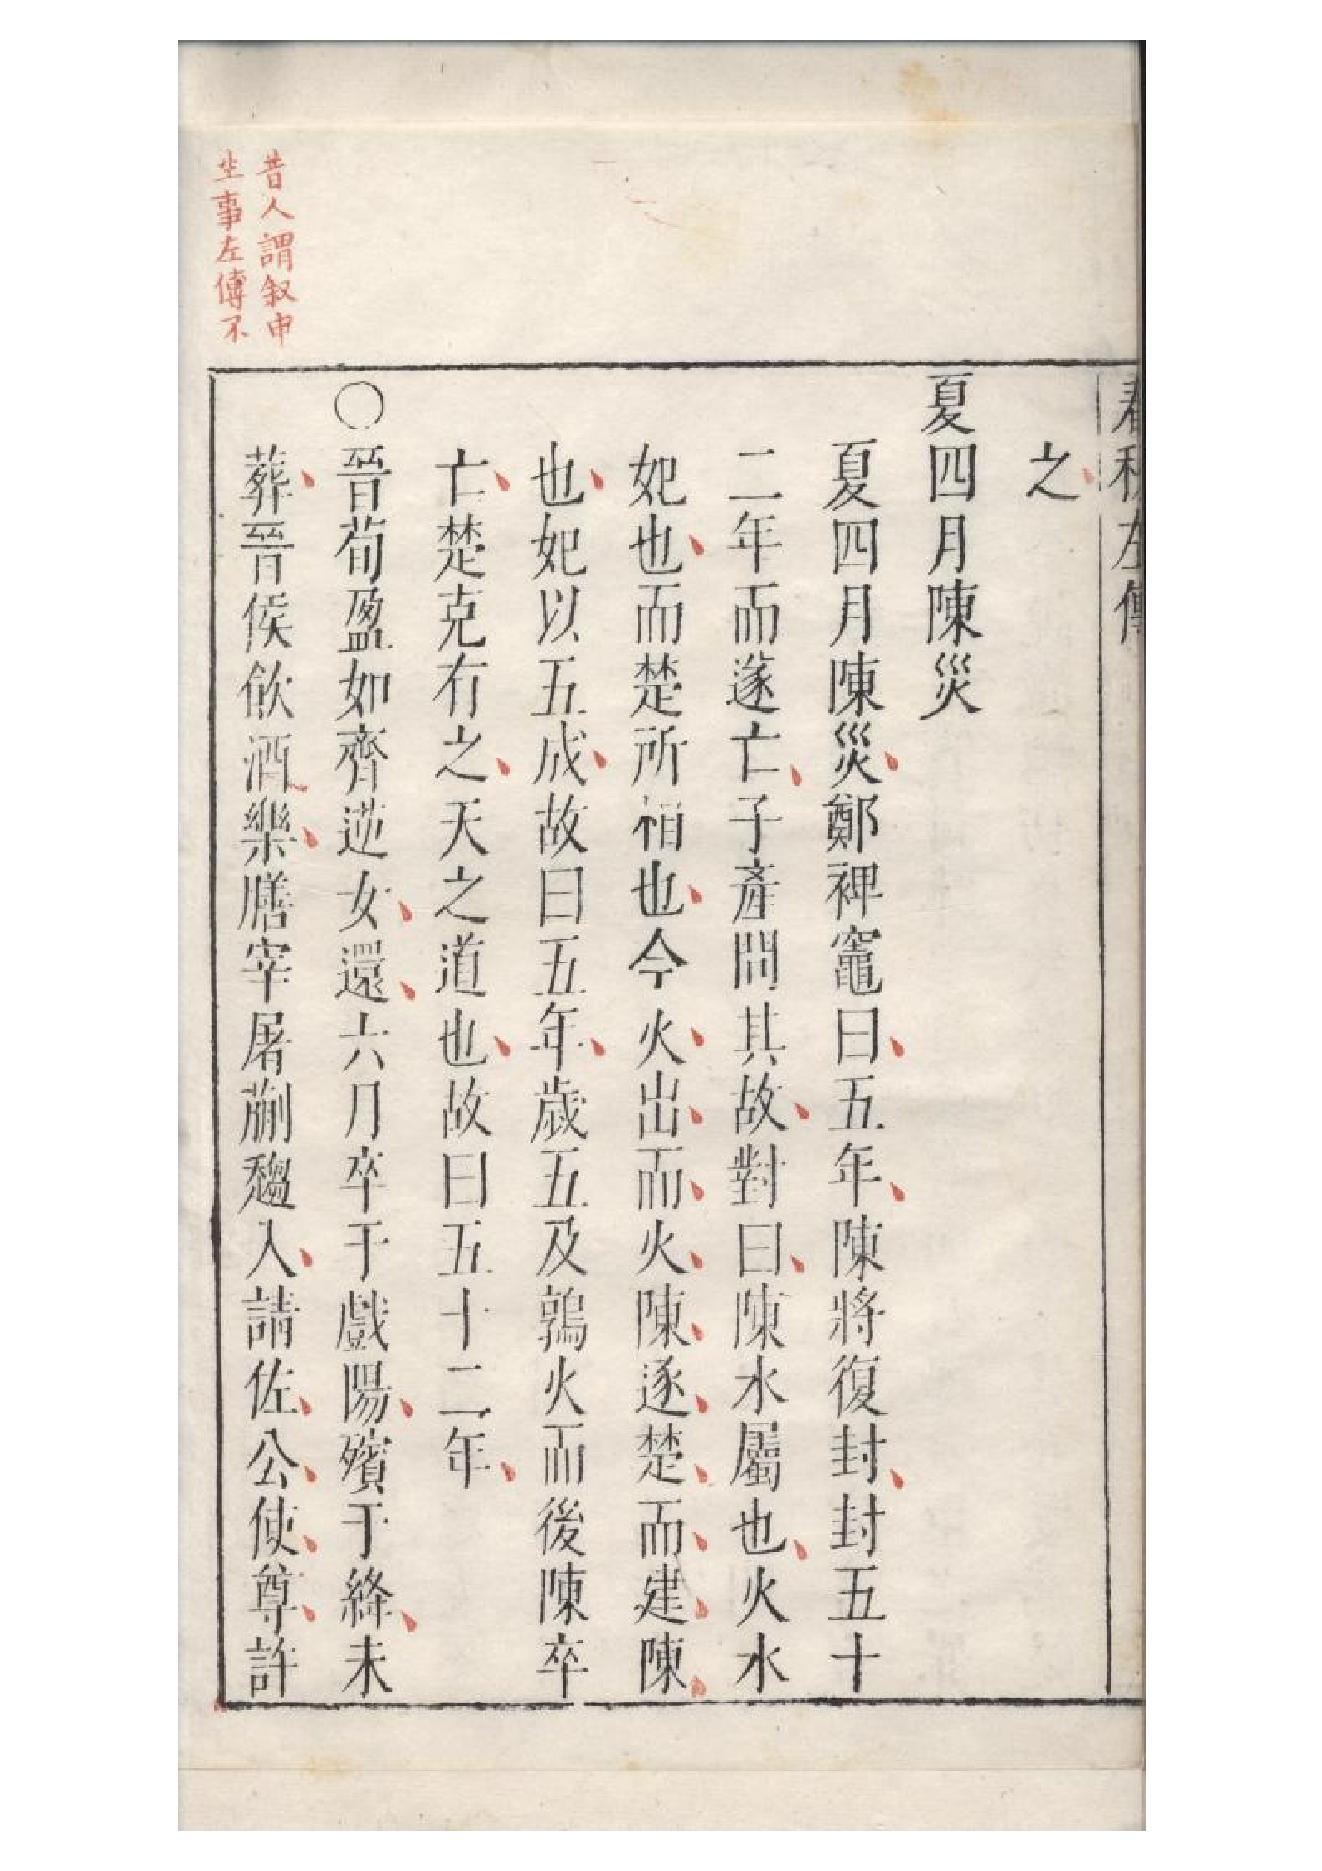 春秋左傳
之
夏四月陳災
夏四月陳災鄭裨竈曰五年陳將復封封五十
二年而遂亡子產問其故對曰陳水屬也火水
妃也而楚所相也今火出而火陳逐楚而建陳
也妃以五成故曰五年歲五及鶉火而後陳卒
亡楚克有之天之道也故曰五十二年
〇晉荀盈如齊逆女還六月卒于戲陽殯于絳未
葬晉侯飲酒樂膳宰屠蒯趨入請佐公使尊許
昔人謂叙申
生事左傳不